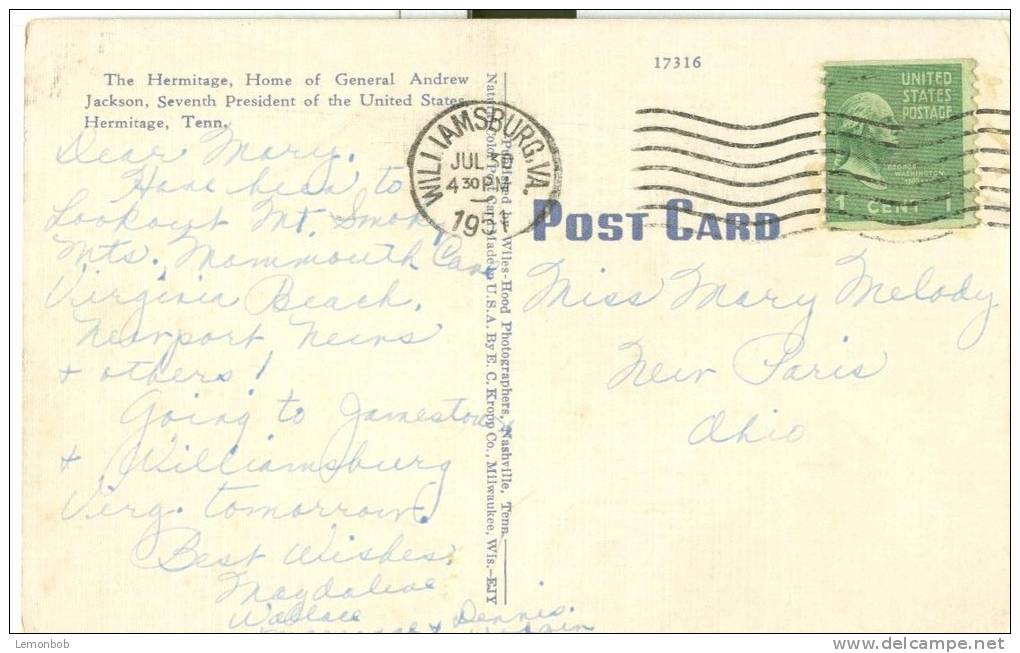 The Hermitage, Home of General Andrew
Jackson, Seventh President of the United States,
Hermitage, Tenn.
Dear Mary.
Have been to
Lookout Mt. Smoky
Mts. Mammouth Cave
Virginia Beach,
Newport News
& others!
Going to Jamestown
& Williamsburg
Virg. tomorrow.
Best Wishes.
Magdaline
Wallace
& Dennis.
Published by Wiles-Hood Photographers, Nashville, Tenn.
Natural Color Post Card Made in U.S.A. By E. C. Kropp Co., Milwaukee, Wis.—EJY
17316
WILLIAMSBURG, VA.
JUL 30
4 30 PM
1951
UNITED
STATES
POSTAGE
WASHINGTON
1 CENT 1
POST CARD
Miss Mary Melody
New Paris
Ohio
Lemonbob
delcampe.net